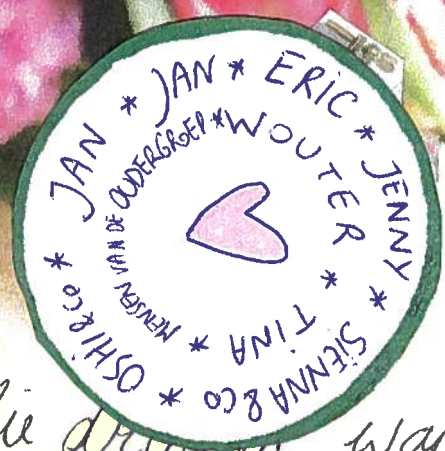 JAN * JAN * ERIC * JENNY * SIENNA & CO * OSHI & CO *
MENSEN VAN DE OUDERGROEP * WOUTER * TINA *